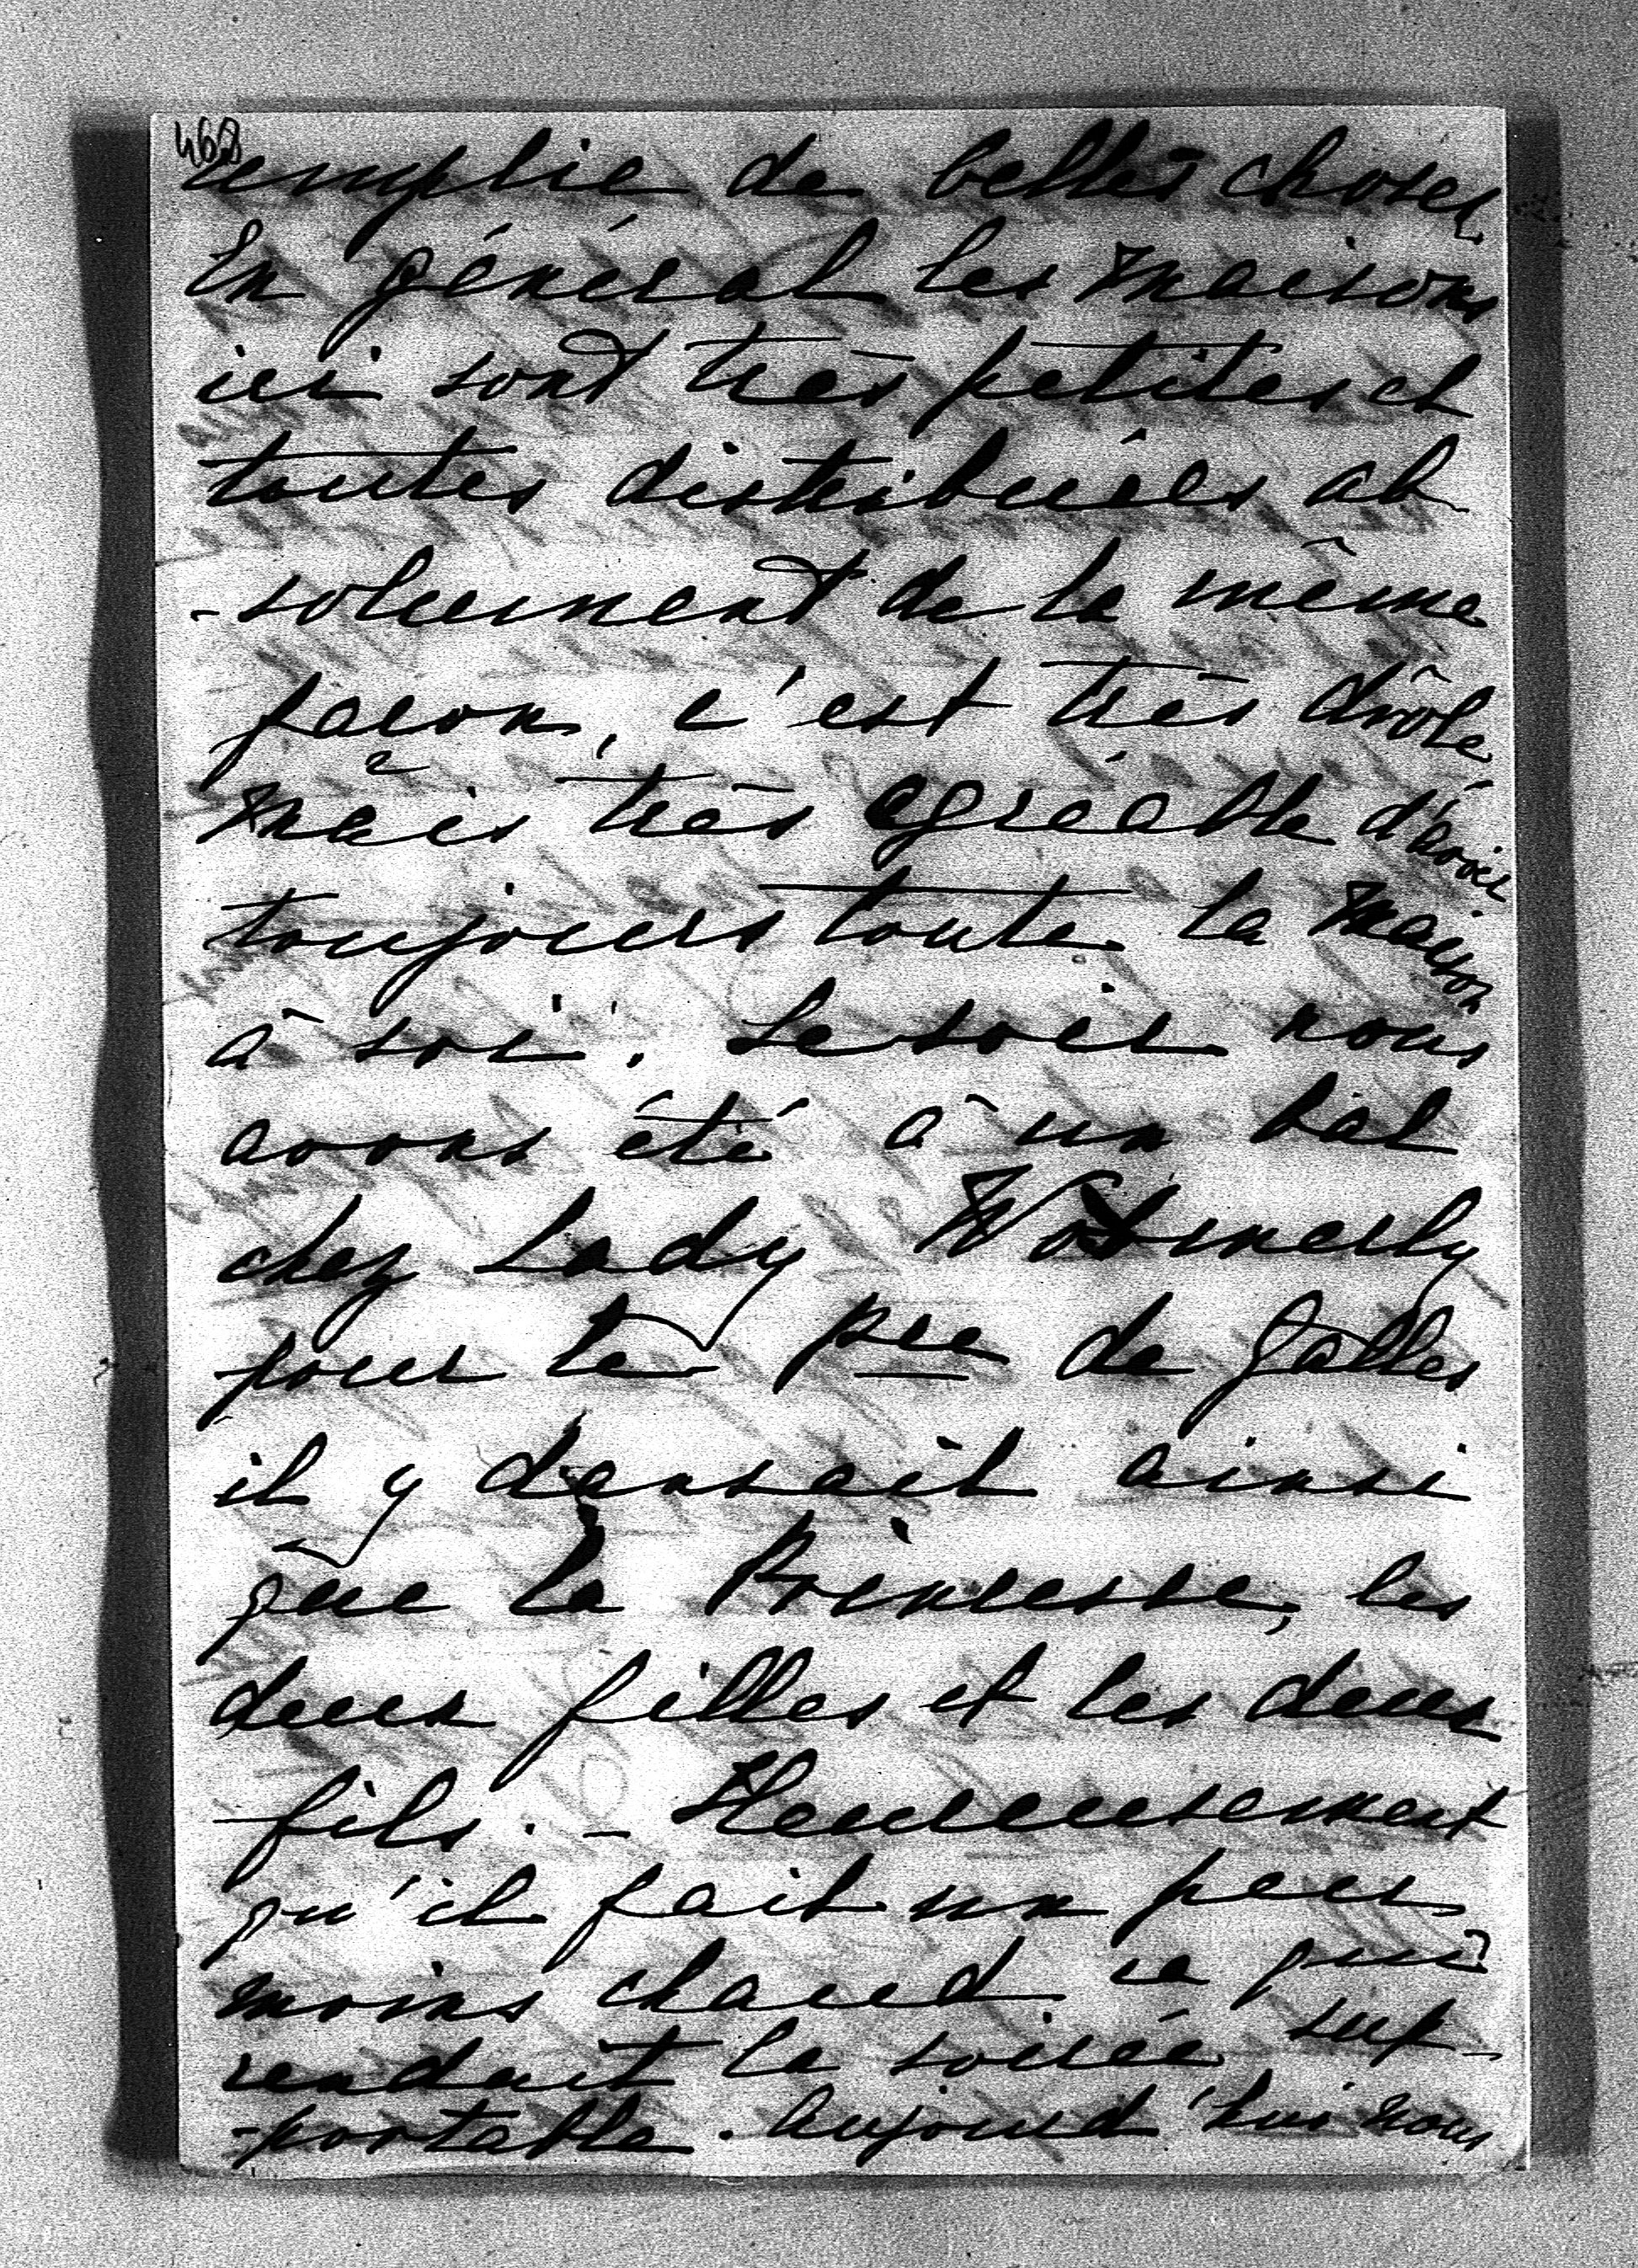 468
remplie de belles choses.
En général les maisons
ici sont très petites et
toutes distribuées ab
-solument de la même
façon, c'est très drôle
mais très agréable d'avoir
toujours toute la maison
à soi. Le soir nous
avons été à un bal
chez Lady
pour le Pce de Galles
il y dansait ainsi
que la Princesse, les
deux filles et les deux
fils. - Heureusement
qu'il fait un peu
moins chaud ce qui
rendait la soirée sup-
-portable. Aujourd'hui nous